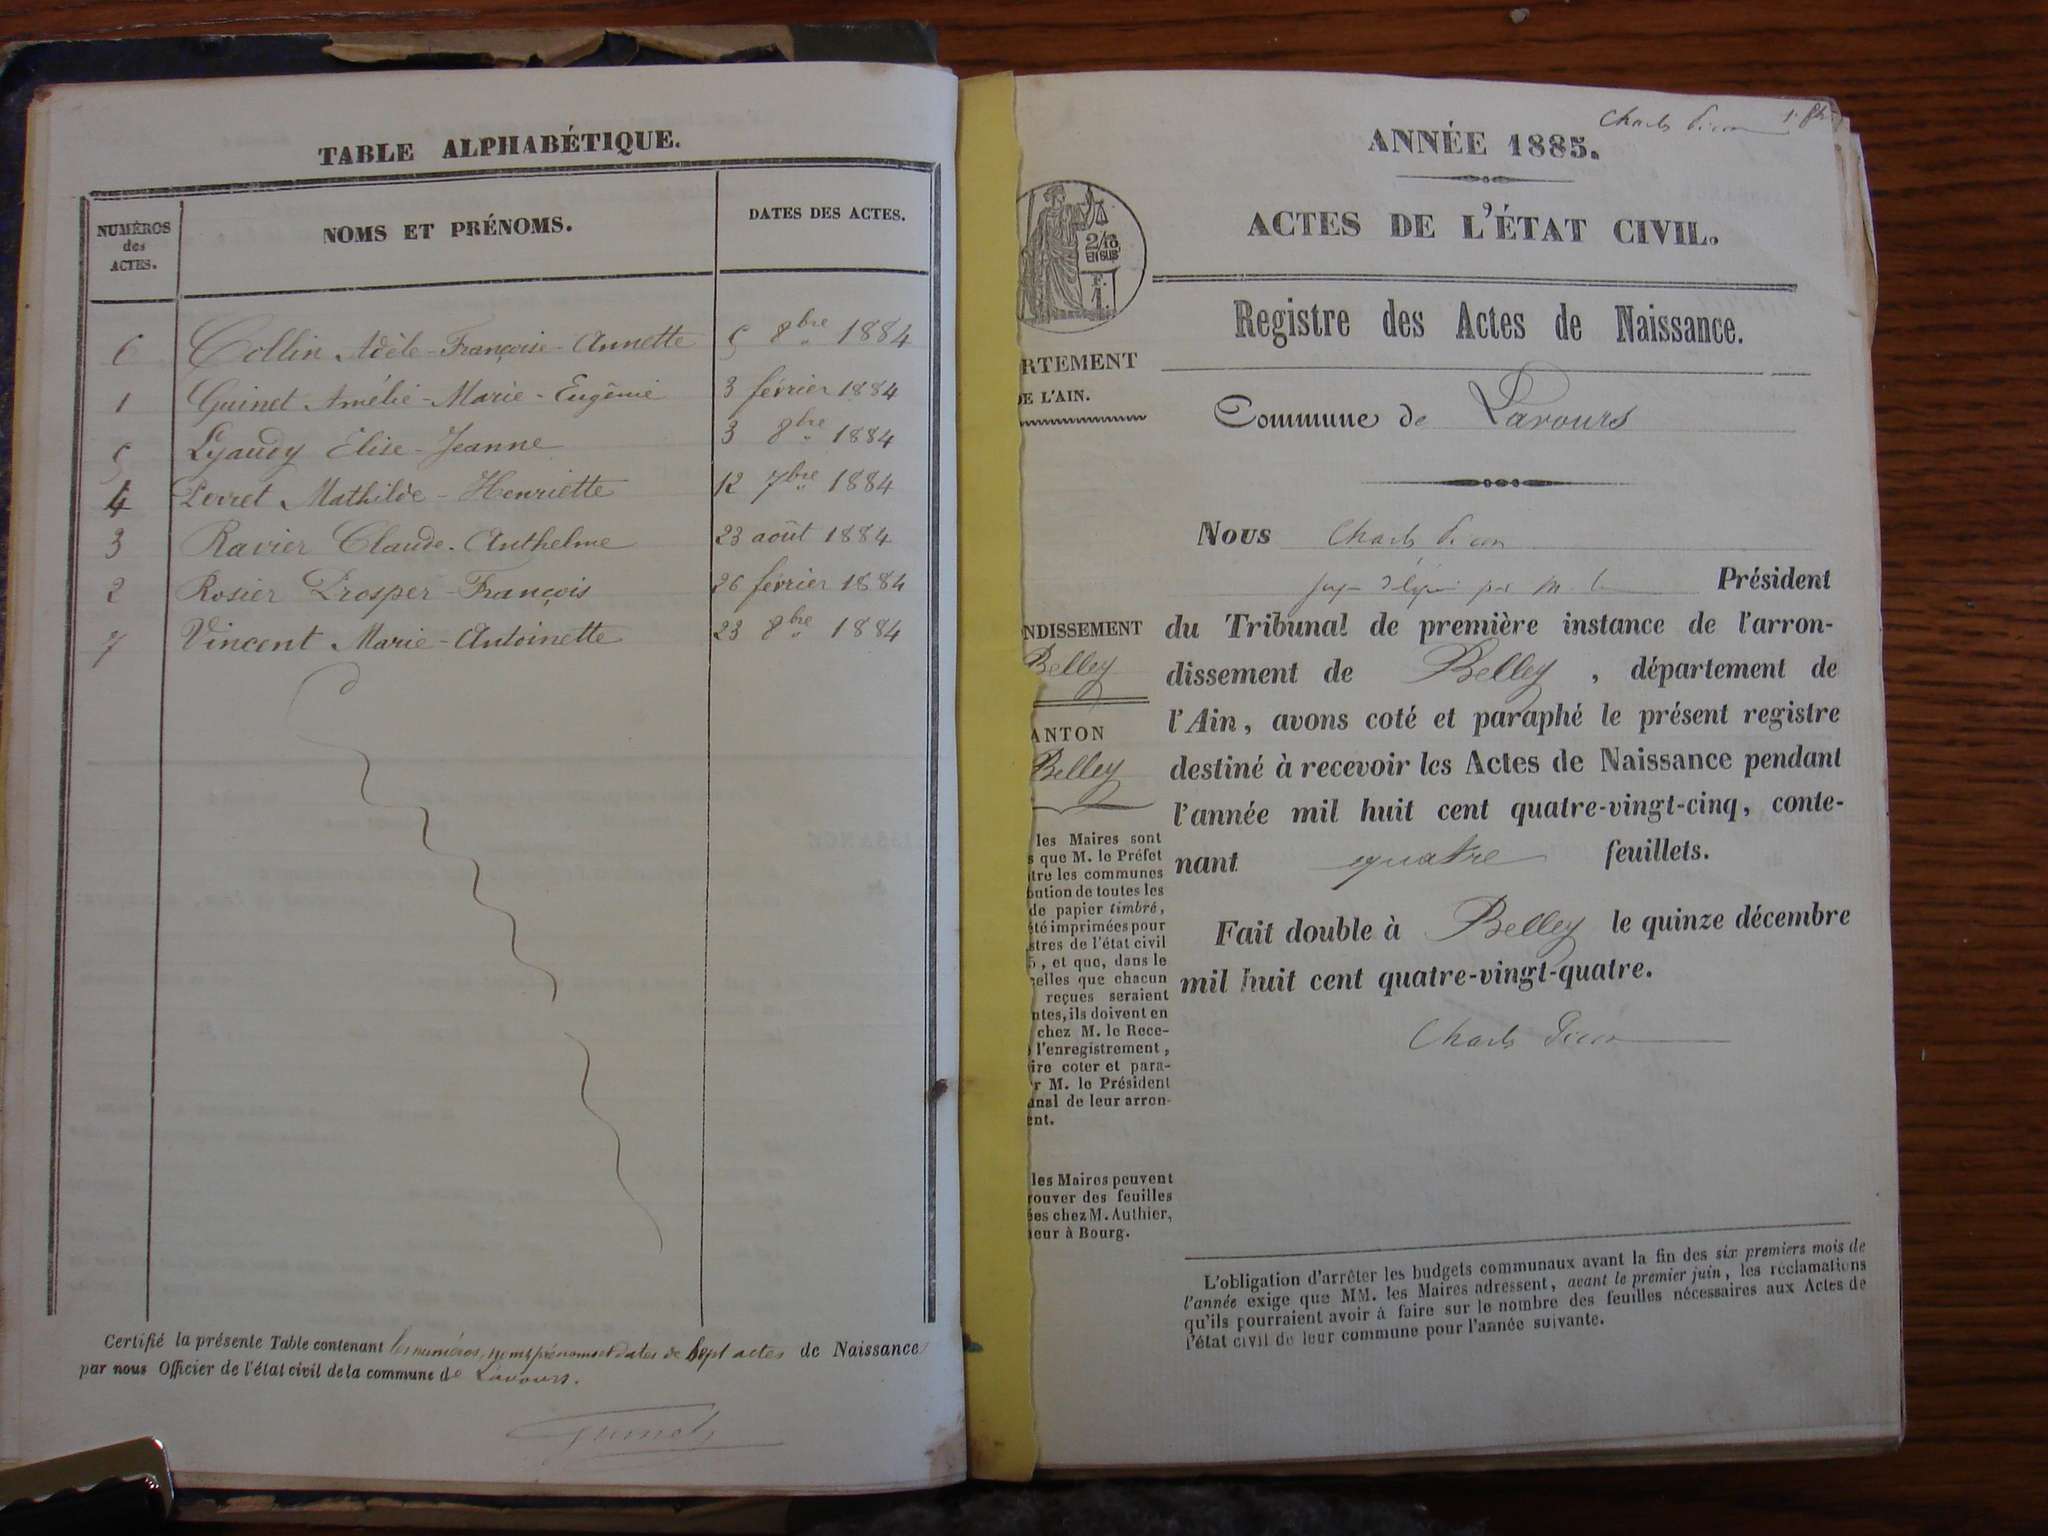 TABLE ALPHABÉTIQUE.
NUMÉROS des ACTES.
NOMS ET PRÉNOMS.
DATES DES ACTES.
6 Collin Adèle-Françoise-Annette 5 8bre 1884
1 Guinet Amélie-Marie-Eugénie 3 février 1884
5 Lyaudy Elise-Jeanne 3 8bre 1884
4 Perret Mathilde-Henriette 12 7bre 1884
3 Ravier Claude-Anthelme 23 août 1884
2 Rosier Prosper-François 26 février 1884
7 Vincent Marie-Antoinette 23 8bre 1884
Certifié la présente Table contenant les numéros, noms prénoms et dates de sept actes de Naissance
par nous Officier de l'état civil de la commune de Lavours.
Charles Picon
ANNÉE 1885.
ACTES DE L'ÉTAT CIVIL.
2/10
EN SUS
F.
1.
Registre des Actes de Naissance.
RTEMENT
DE L'AIN.
Commune de Lavours
Nous Charles Picon
juge par M. le Président
NDISSEMENT
Belley
ANTON
Belley
du Tribunal de première instance de l'arron-
dissement de Belley, département de
l'Ain, avons coté et paraphé le présent registre
destiné à recevoir les Actes de Naissance pendant
l'année mil huit cent quatre-vingt-cinq, conte-
nant quatre feuillets.
Fait double à Belley le quinze décembre
mil huit cent quatre-vingt-quatre.
Charles Picon
les Maires sont
s que M. le Préfet
tre les communes
ention de toutes les
de papier timbré,
été imprimées pour
stres de l'état civil
5, et que, dans le
celles que chacun
reçues seraient
ntes, ils doivent en
chez M. le Rece-
l'enregistrement,
ire coter et para-
r M. le Président
unal de leur arron-
ent.
les Maires peuvent
rouver des feuilles
ées chez M. Authier,
eur à Bourg.
L'obligation d'arrêter les budgets communaux avant la fin des six premiers mois de
l'année exige que MM. les Maires adressent, avant le premier juin, les réclamations
qu'ils pourraient avoir à faire sur le nombre des feuilles nécessaires aux Actes de
l'état civil de leur commune pour l'année suivante.